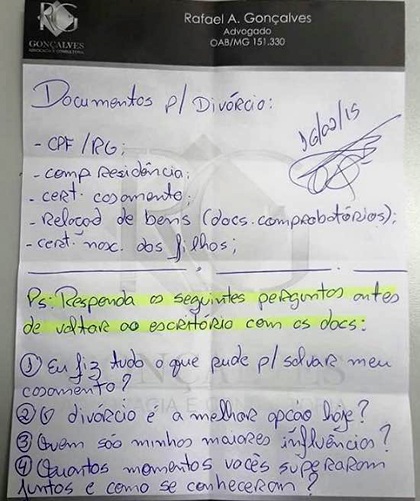 Rafael A. Gonçalves
Advogado
OAB/MG 151.330
GONÇALVES
ADVOCACIA E CONSULTORIA
Documentos p/ Divórcio:
- CPF/RG;
- comp Residência;
- cert. casamento;
- Relação de bens (docs. comprobatórios);
- cert. nasc. dos filhos;
Ps: Responda as seguintes perguntas antes
de voltar ao escritório com os docs:
① Eu fiz tudo o que pude p/ salvar meu
casamento?
② O divórcio é a melhor opção hoje?
③ Quem são minhas maiores influências?
④ Quantos momentos vocês superaram
juntos e como se conheceram?